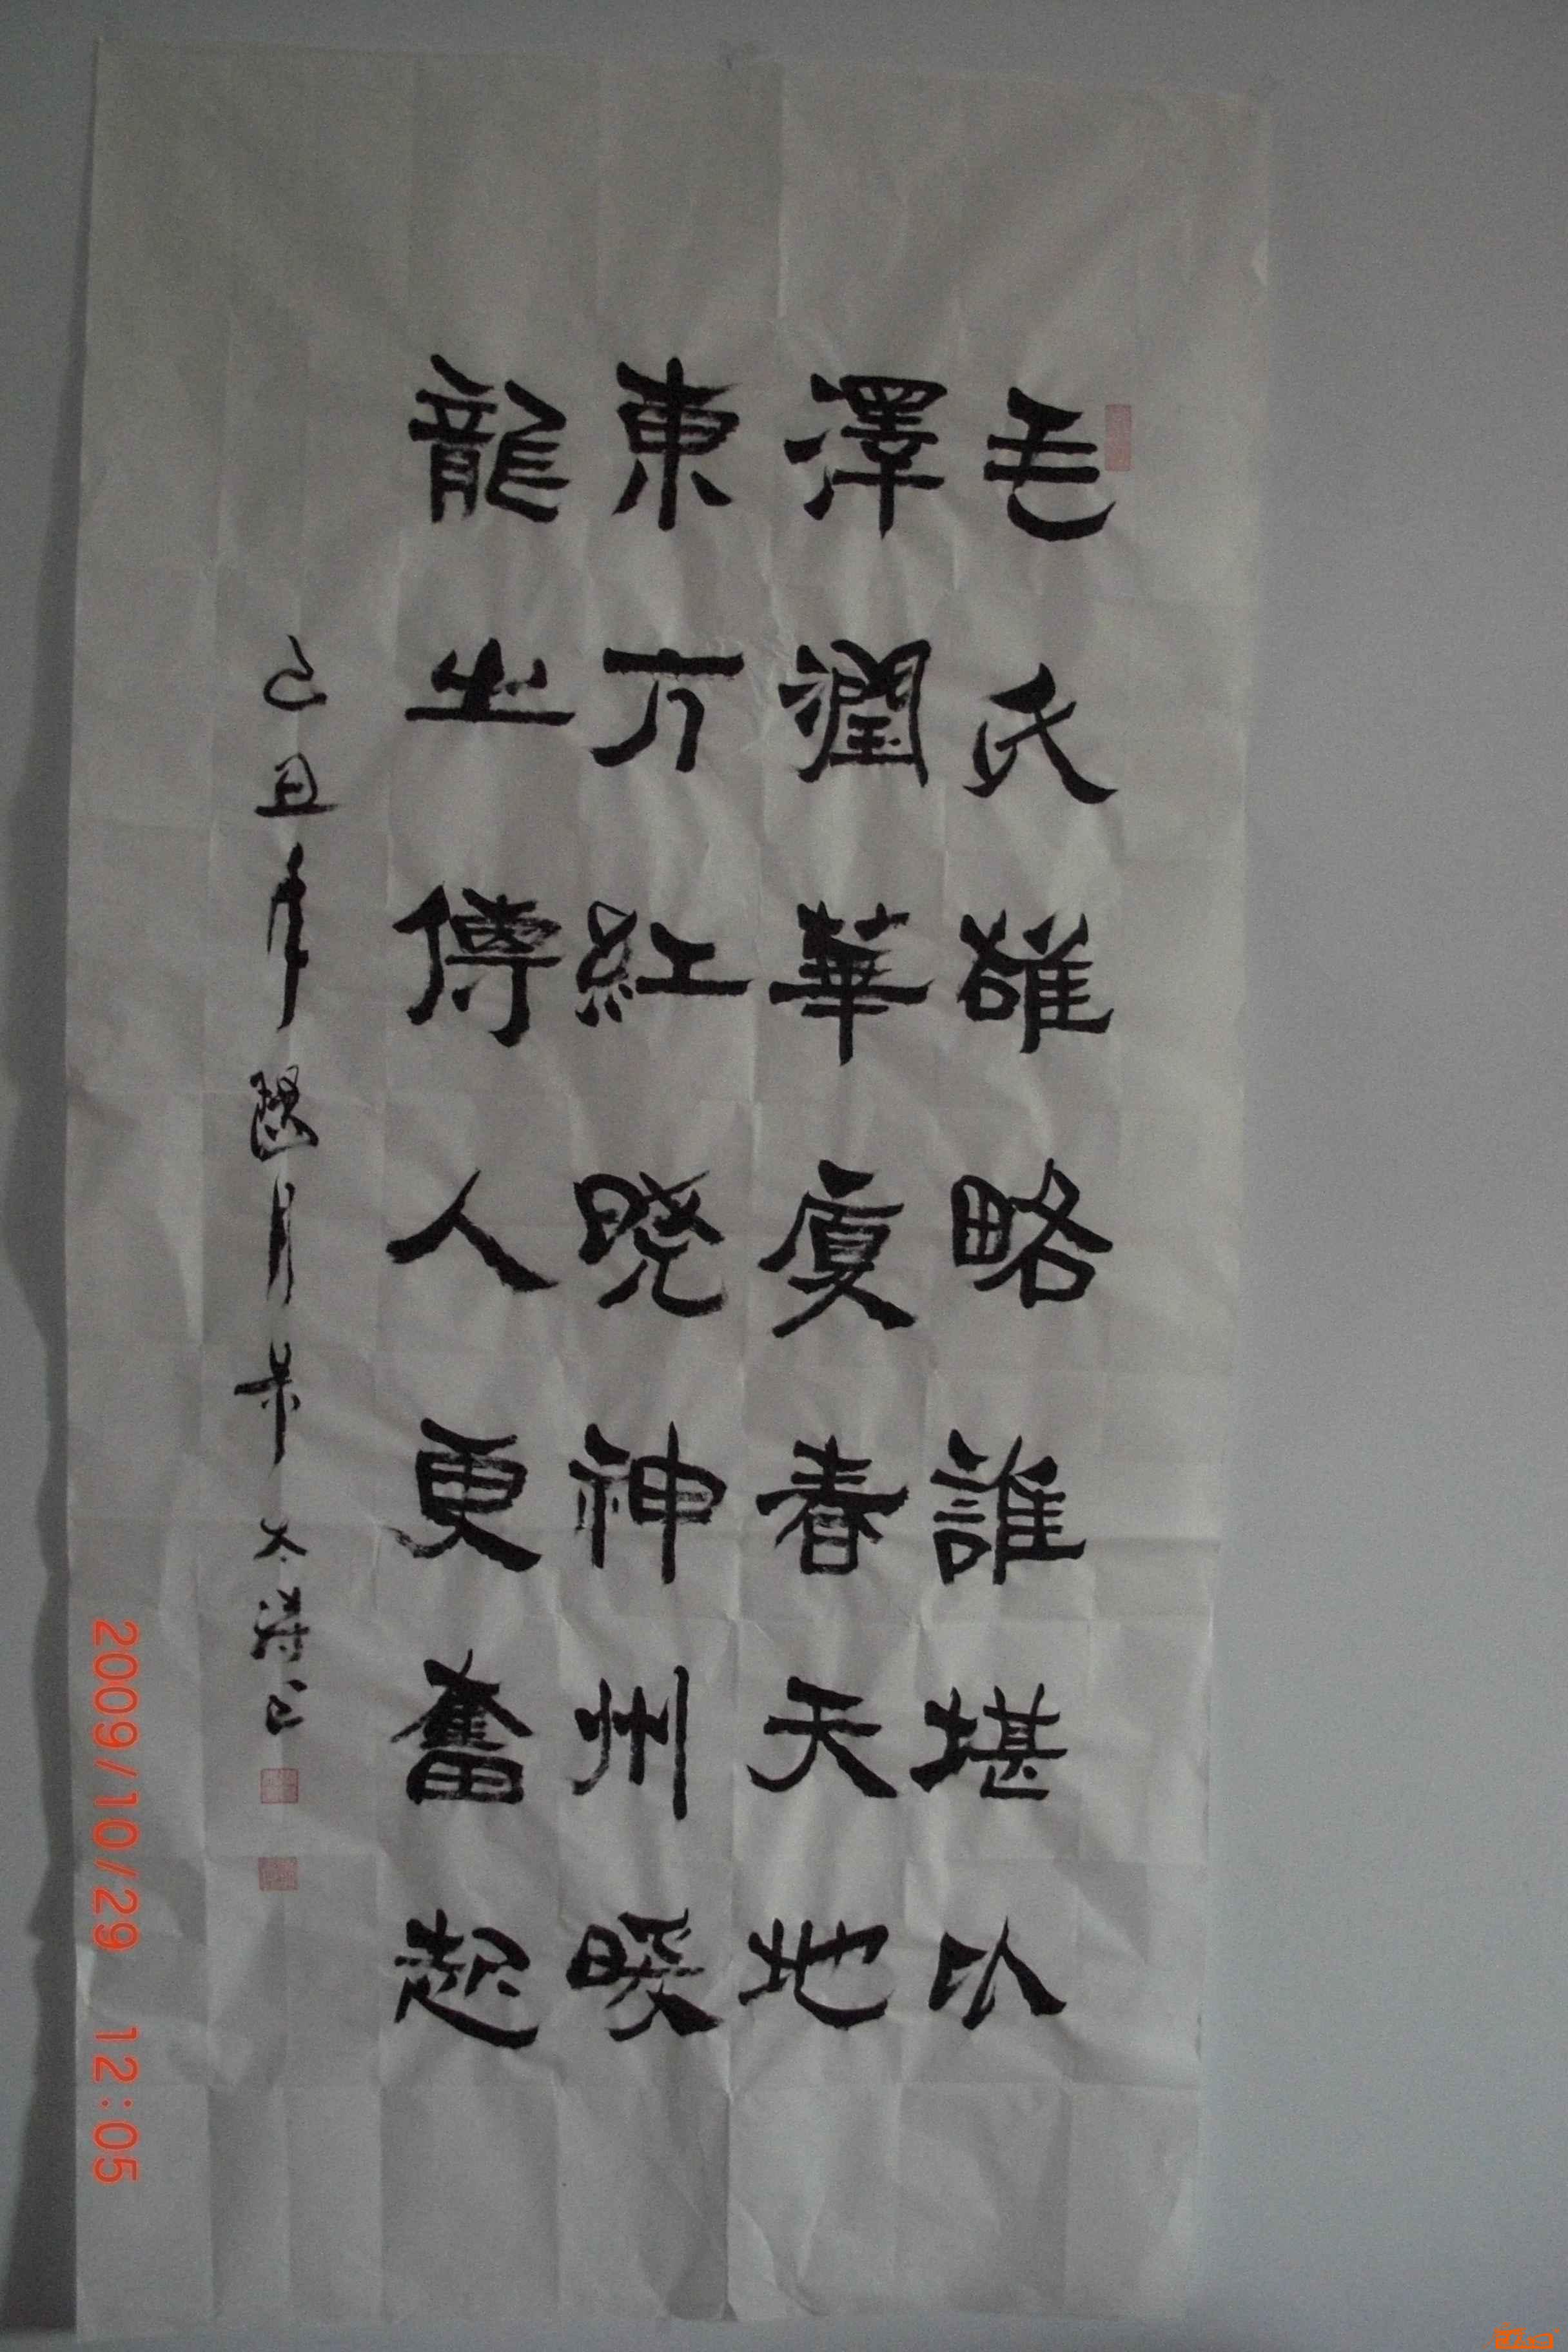 毛氏雄略誰堪以
澤潤華夏春天地
東方紅曉神州暖
龍之傳人更奮起
己丑年 月 大洋
2009/10/29 12:05